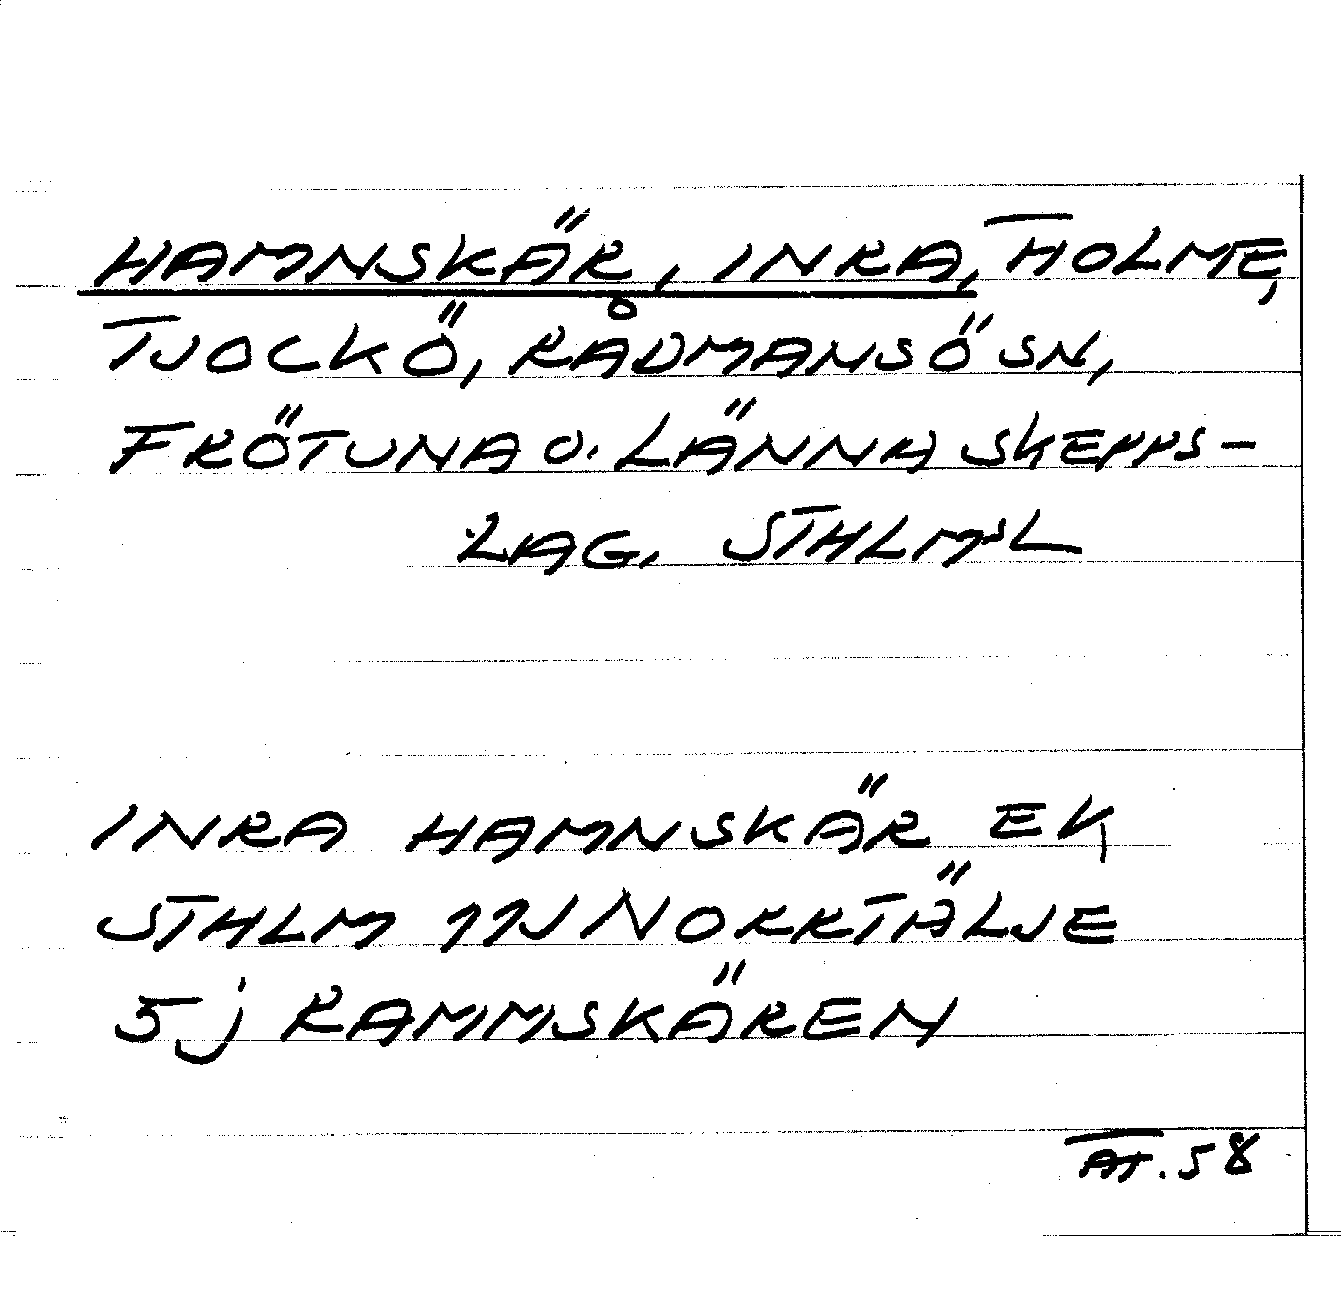 HAMNSKÄR, INRA, HOLME,
TJOCKÖ, RÅDMANSÖ SN,
FRÖTUNA O. LÄNNA SKEPPS-
LAG, STHLMSL
INRA HAMNSKÄR EK,
STHLM 11J NORRTÄLJE
5j RAMMSKÄREN
58